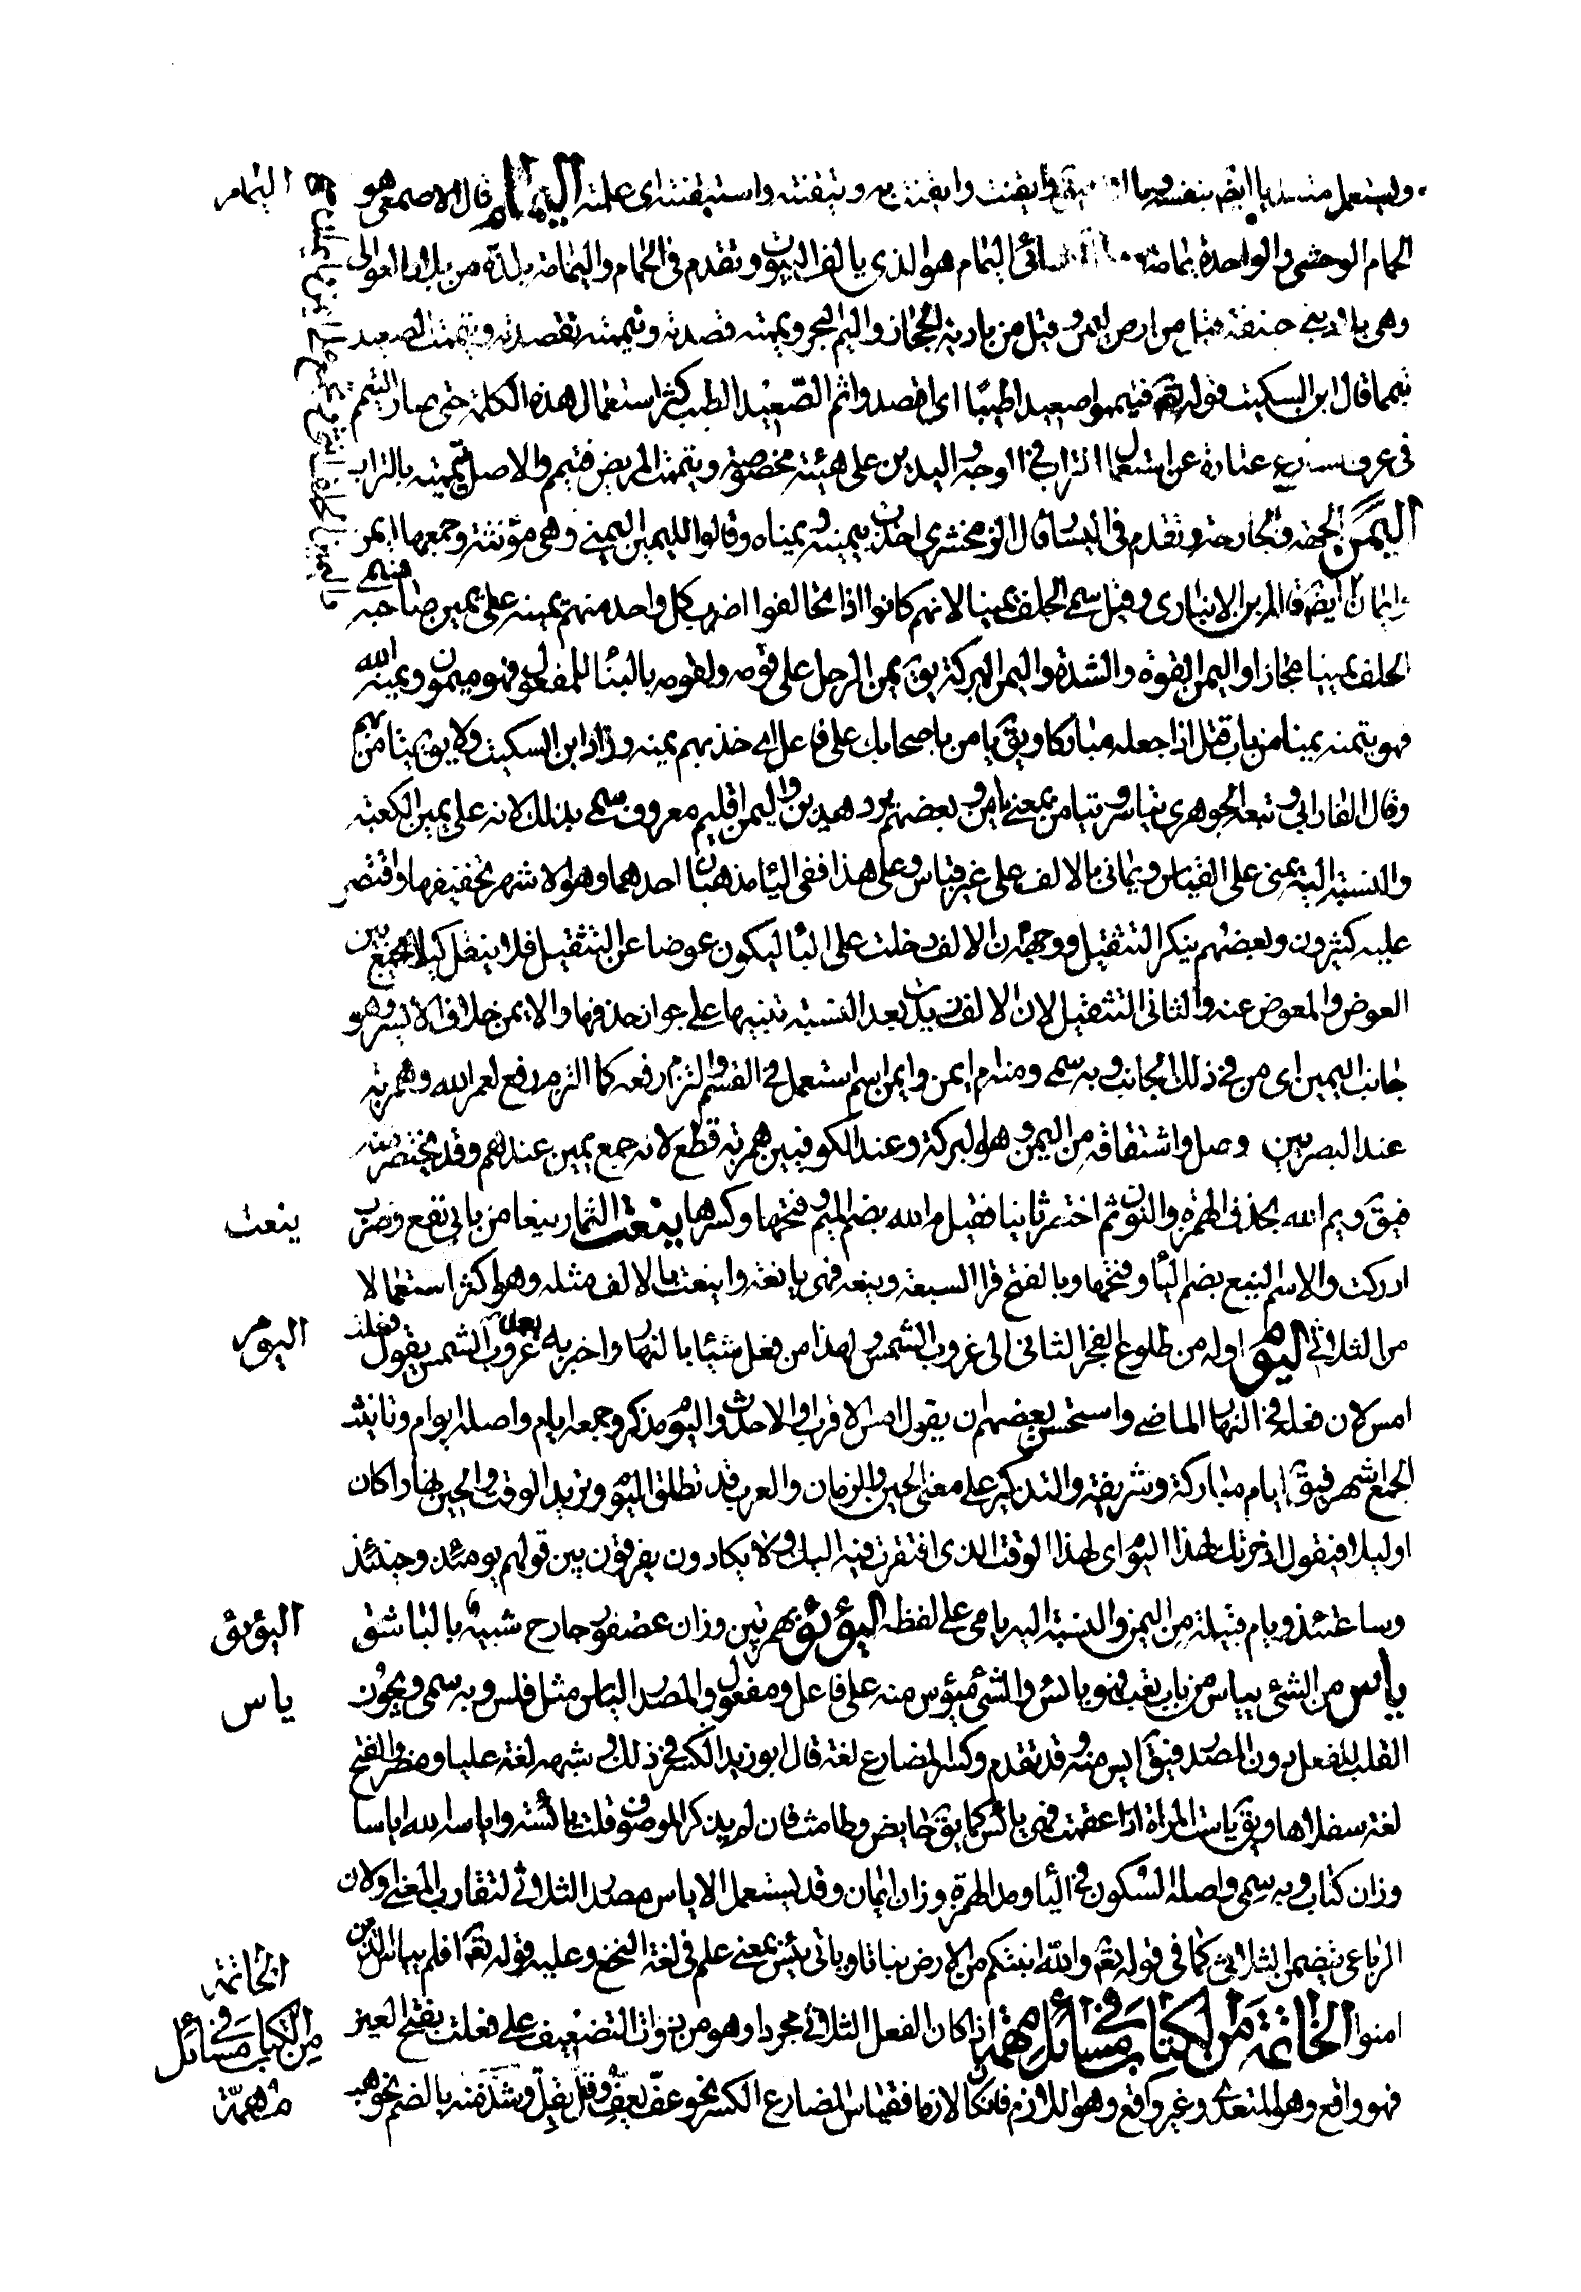 ويستعمل متعديا ايضا بنفسه وبالباء فيقال يقنته وايقنت وايقنت به وتيقنته واستيقنته اى علمته اليمام قال الاصمعى هو
اليمام
الحمام الوحشى والواحدة يمامة وقال الكسائى اليمام هو الذى يالف البيوت وتقدم فى الحمام واليمامة بلدة من بلاد العوالى
وهى بلاد بنى حنيفة قيل من ارض العروض وقيل من بادية الحجاز واليم البحر ويممته قصدته وتيممته تقصدته وتيممت الصعيد
تيمما قال ابن السكيت قوله تع فتيمموا صعيدا طيبا اى اقصدوا ثم الصعيد الطيب كثر استعمال هذه الكلمة حتى صار التيمم
فى عرف الشرع عبارة عن استعمال التراب فى الوجه واليدين على هيئة مخصوصة ويممت المريض فتيمم والاصل يممته بالتراب
اليمين الجهة والجارحة وتقدم فى اليسار قال الزمخشرى اخذت بيمينه ويمناه وقالوا لليمين اليمنى وهى مؤنثة وجمعها ايمن
وايمان ايضا قاله ابن الانبارى وقيل سمى الحلف يمينا لانهم كانوا اذا تحالفوا ضرب كل واحد منهم يمينه على يمين صاحبه فسمى
الحلف يمينا مجازا واليمين القوة والشدة واليمن البركة يق يمن الرجل على قومه ولقومه بالبناء للمفعول فهو ميمون ويمنه الله
فهو يتمنه يمنا من باب قتل اذا جعله مباركا ويق يامن باصحابك على فاعل اى خذ بهم يمنة وزاد ابن السكيت ولا يق تيامن بهم
وقال الفارابى وتبعه الجوهرى تياسر وتيامن بمعنى يامن وبعضهم يرد هذين واليمن اقليم معروف سمى بذلك لانه على يمين الكعبة
والنسبة اليه يمنى على القياس ويمانى بالالف على غير قياس وعلى هذا ففى الياء مذهبان احدهما وهو الاشهر تخفيفها واقتصر
عليه كثيرون وبعضهم ينكر التثقيل ووجهه ان الالف دخلت على الياء ليكون عوضا عن التثقيل فلا يثقل كيلا يجمع بين
العوض والمعوض عنه والثانى التثقيل لان الالف زيدت بعد النسبة تنبيها على جواز حذفها والايمن خلاف الايسر وهو
جانب اليمين اى من فى ذلك الجانب وبه سمى ومنه ام ايمن وايمن اسم استعمل فى القسم والتزم رفعه كما التزم رفع لعمر الله وهمزته
عند البصريين وصل واشتقاقه من اليمن وهو البركة وعند الكوفيين همزته قطع لانه جمع يمين عندهم وقد يختصر منه
فيق وايم الله بحذف الهمزة والنون ثم اختصر ثانيا فقيل م الله بضم الميم وفتحها وكسرها ينعت الثمار ينعا من بابى نفع وضرب
ينعت
ادركت والاسم الينع بضم الياء وفتحها وبالفتح قرا السبعة وينعه فهى يانعة واينعت بالالف مثله وهو اكثر استعمالا
من الثلاثى اليوم اوله من طلوع الفجر الثانى الى غروب الشمس ولهذا من فعل شيئا بالنهار واخبر به بعد غروب الشمس يقول فعلته
اليوم
امس لان فعله فى النهار الماضى واستحسن بعضهم ان يقول امس الاقرب او الاحدث واليوم مذكر وجمعه ايام واصله ايوام وتانيث
الجمع اشهر فيق ايام مباركة وشريفة والتذكير على معنى الحين والزمان والعرب قد تطلق اليوم وتريد الوقت والحين نهارا كان
او ليلا فيقول ادخرتك لهذا اليوم اى لهذا الوقت الذى افتقرت فيه اليك ولا يكادون يفرقون بين قولهم يومئذ وحينئذ
وساعتئذ ويام قبيلة من اليمن والنسبة اليه يامى على لفظه اليؤيؤ بهمزتين وزان عصفور جارح شبيه بالباشق
اليؤيؤ
يأس من الشئ ييأس من باب تعب فهو يائس والشئ ميؤس منه على فاعل ومفعول والمصدر الياس مثل فلس وبه سمى ويجوز
ياس
القلب للفعل دون المصدر فيق ايس منه وقد تقدم وكسر المضارع لغة قال ابو زيد الكسر فى ذلك وشبهه لغة عليا مضر والفتح
لغة سفلاها ويق يأست المرأة اذا عقمت فهى يائس كما يق حايض وطامث فان لم يذكر الموصوف قلت يائسة وايأسها الله اياسا
وزان كتاب وبه سمى واصله السكون فى الياء ومد الهمزة وزان ايمان وقد يستعمل الاياس مصدر الثلاثى لتقارب المعنى ولان
الرباعى يتضمن الثلاثى كما فى قوله تع والله انبتكم من الارض نباتا وياتى يئس بمعنى علم فى لغة النخع وعليه قوله تع افلم ييأس الذين
امنوا الخاتمة من الكتاب فى مسائل مهمة اذا كان الفعل الثلاثى مجردا وهو من ذوات التضعيف على فعلت بفتح العين
الخاتمة
من الكتاب فى مسائل
مهمة
فهو واقع وهو المتعدى وغير واقع وهو اللازم فان كان لازما فقياس المضارع الكسر نحو عف يعف وقل يقل وشذ منه بالضم نحو هب